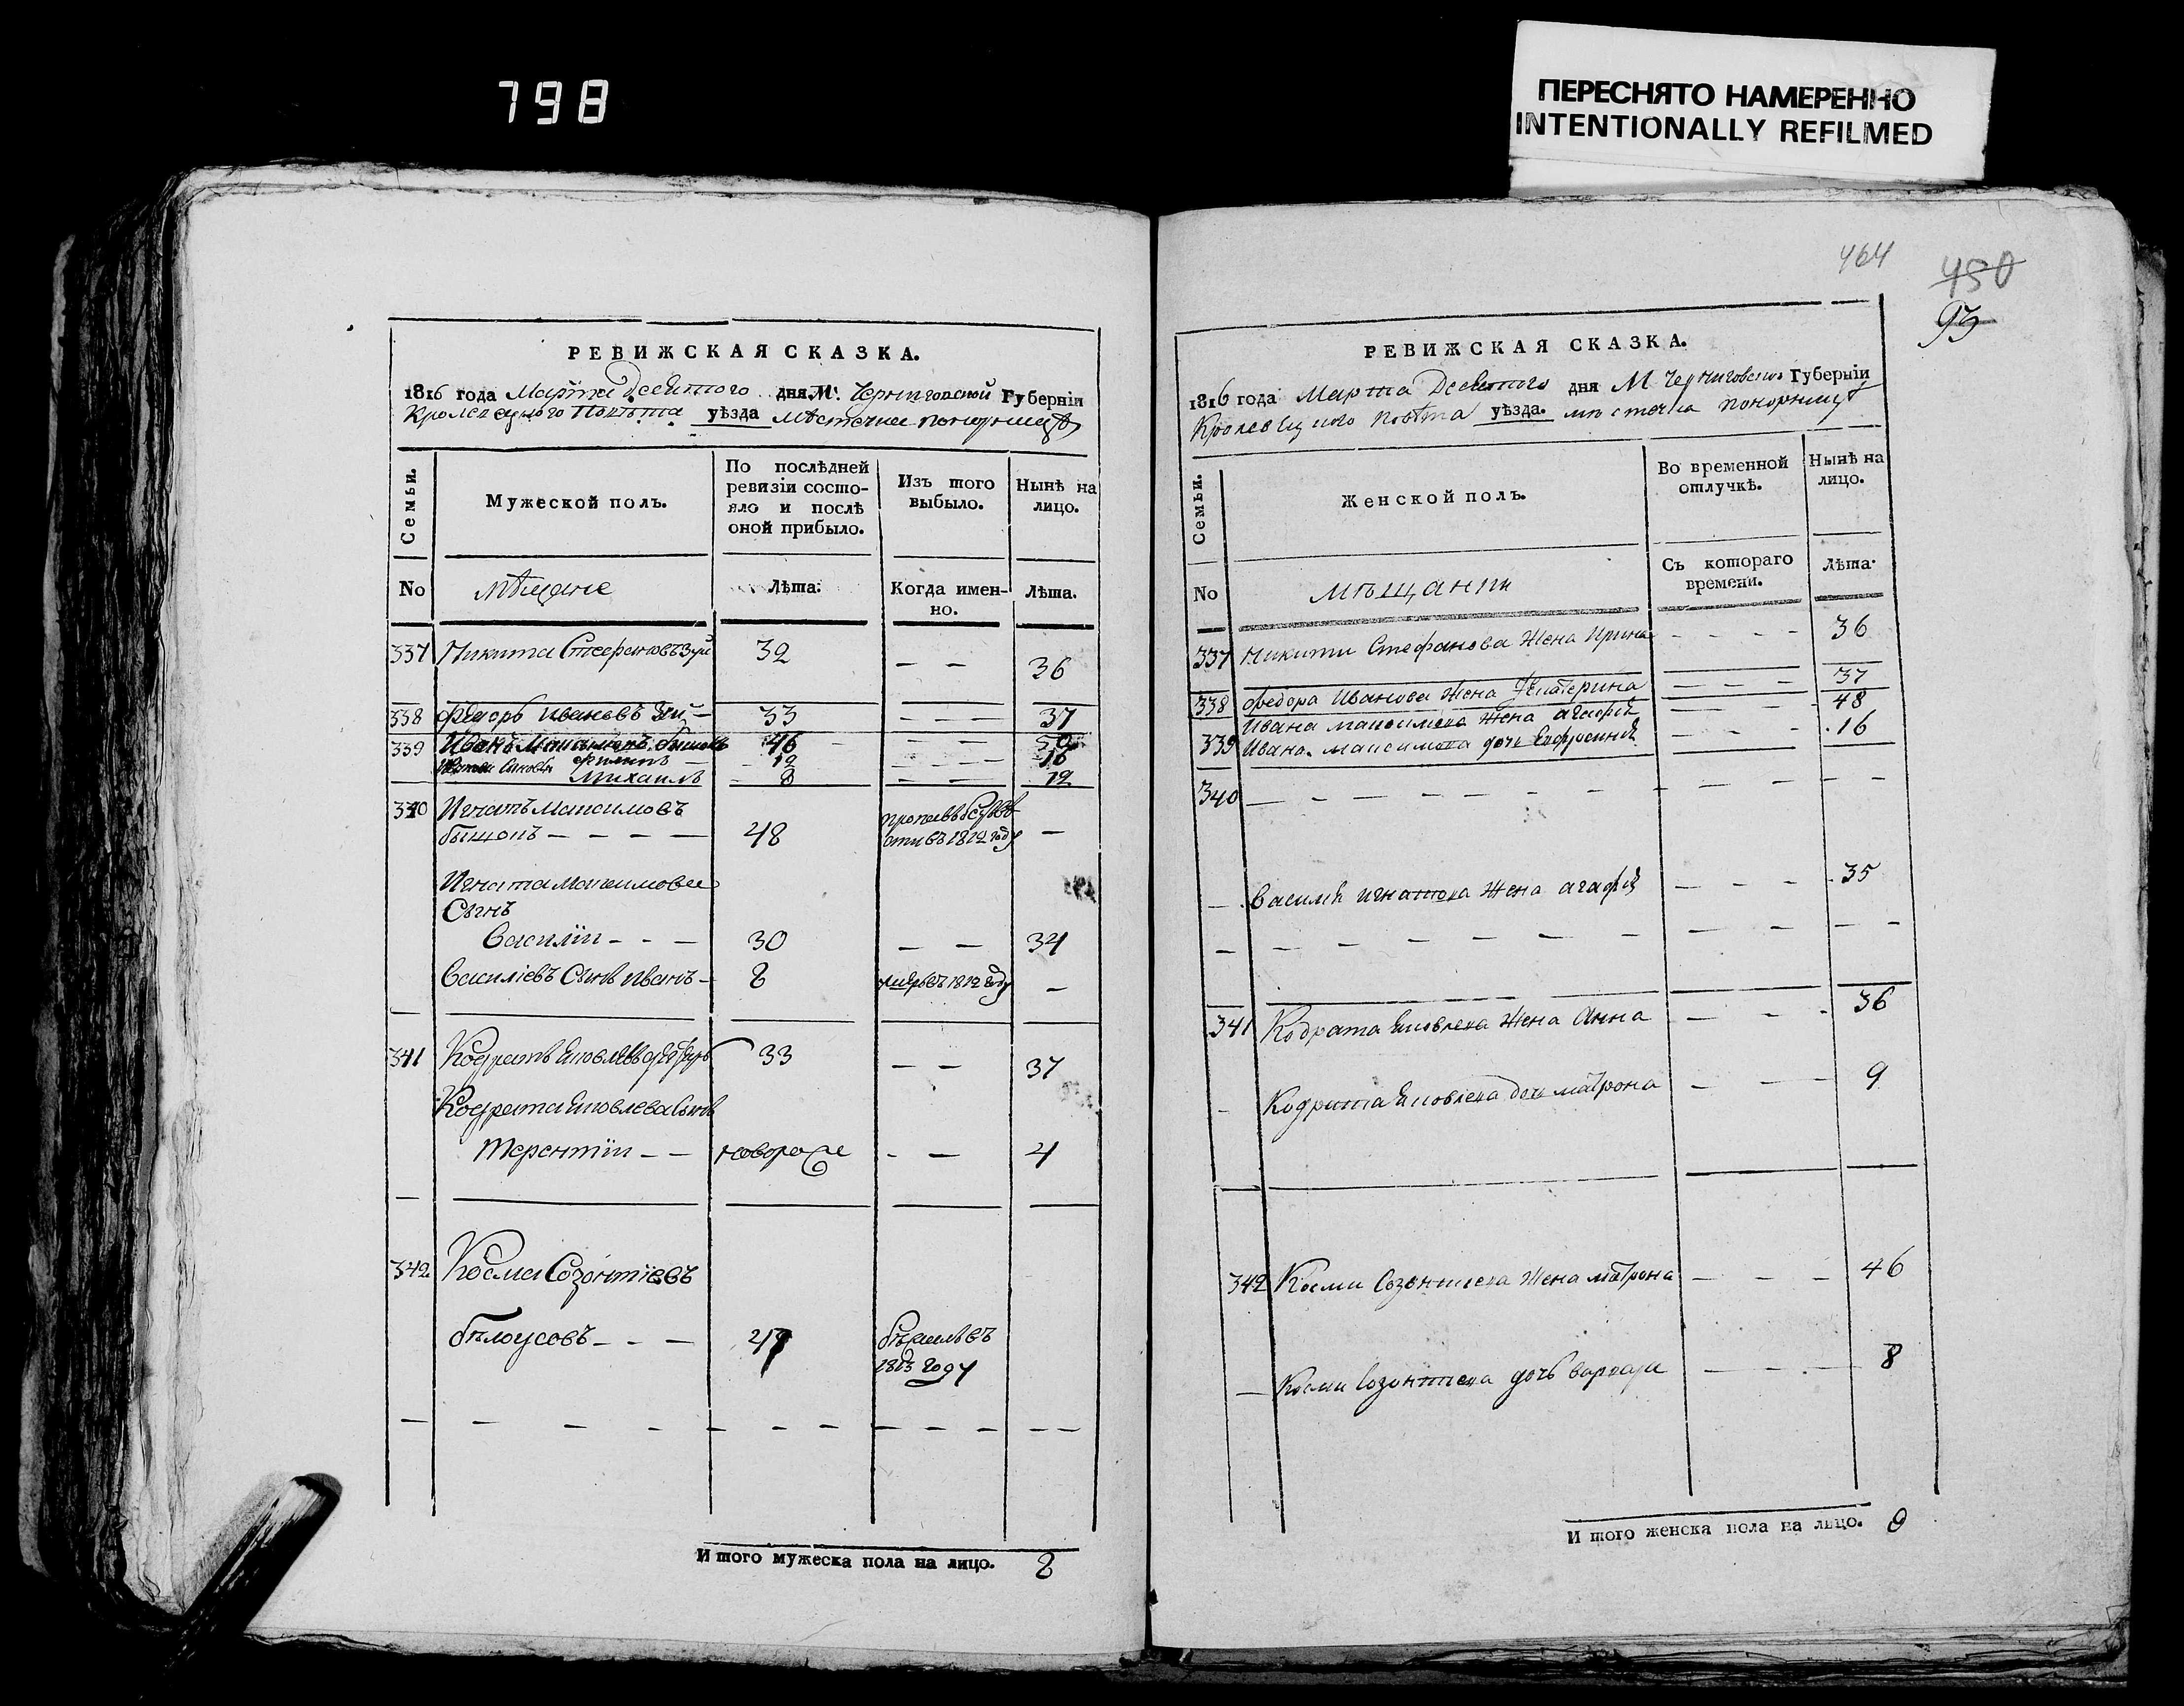 798
ПЕРЕСНЯТО НАМЕРЕННО
INTENTIONALLY REFILMED
РЕВИЖСКАЯ СКАЗКА.
1816 года Марта Десятого дня М. Черниговской Губерніи
Кролевецкого Повѣта уѣзда Мѣстечка Понорницы
Семьи.
Мужеской полъ.
По послѣдней
ревизіи состо-
яло и послѣ
оной прибыло.
Изъ того
выбыло.
Нынѣ на
лицо.
No мѣщане Лѣта. Когда имен-
но. Лѣта.
337 Никита Стефановъ Зуй 32 — — 36
338 Федоръ Ивановъ Зуй — 33 — — — 37
339 Иванъ Максимовъ 46 — — — 50
Филипъ — 12 — — — 16
Михаилъ 8 — — — 12
340 Игнатъ Максимовъ
— — — — 48 1812 году —
Игната Максимова
Сынъ
Василій - - — 30 — — 34
Василіевъ Сынъ Иванъ — 8 умеръ въ 1812 году —
341 Кодратъ Яковлевъ 33 — — 37
Кодрата Яковлева Сынъ
Терентій — — новорож - — 4
342 Косма Созонтіевъ
бѣлоусовъ — - — 47 въ
1813 году
И того мужеска пола на лицо. 8
464
450
93
РЕВИЖСКАЯ СКАЗКА.
1816 года Марта Десятого дня М Черниговской Губерніи
Кролевецкого Повѣта уѣзда. мѣстечка Понорницы
Семьи.
Женской полъ.
Во временной
отлучкѣ.
Нынѣ на
лицо.
No мѣщанки Съ котораго
времени. Лѣта.
337 Никити Стефанова Жена Ирина - - - — 36
338 Федора Иванова Жена Екатерина — — — 37
Ивана Максимова Жена Агафія — — — 48
339 Ивана Максимова дочь Евфросинія - - - 16
340 — - — — — - - - — - — —
— Василія Игнатова Жена Агафія — - - 35
341 Кодрата Яковлева Жена Анна — - - 36
- Кодрата Яковлева дочь Матрона — - — 9
342 Косми Созонтіева Жена Матрона — - — 46
— Косми Созонтіева дочь Варвара — - — 8
И того женска пола на лицо. 9